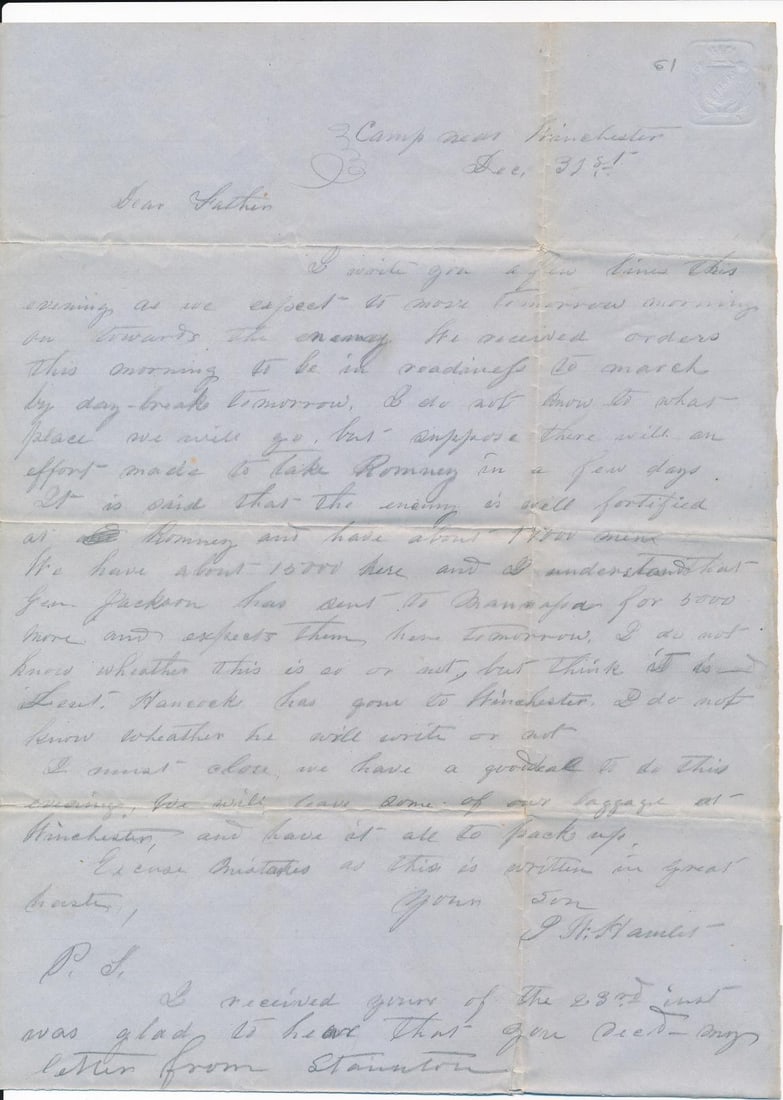 61
Camp near Winchester
Dec. 31st
Dear Father
I write you a few lines this
evening as we expect to move tomorrow morning
on towards the enemy We received orders
this morning to be in readiness to march
by day-break tomorrow. I do not know to what
place we will go, but suppose there will an
effort made to take Romney in a few days.
It is said that the enemy is well fortified
at Romney and have about
We have about 15000 here and I understand that
Gen. Jackson has sent to Mannapa for 5000
more and expects them here tomorrow. I do not
know wheather this is so or not, but think it is
Leut. Hancock has gone to Winchester. I do not
know wheather he will write or not
I must close, we have a good deal to do this
evening, We will leave some of our baggage at
Winchester, and have it all to pack up.
Excuse mistakes as this is written in great
haste, Your Son
Hamlet
P. S.
I received yours of the 23rd inst
was glad to hear that you recd my
letter from Staunton